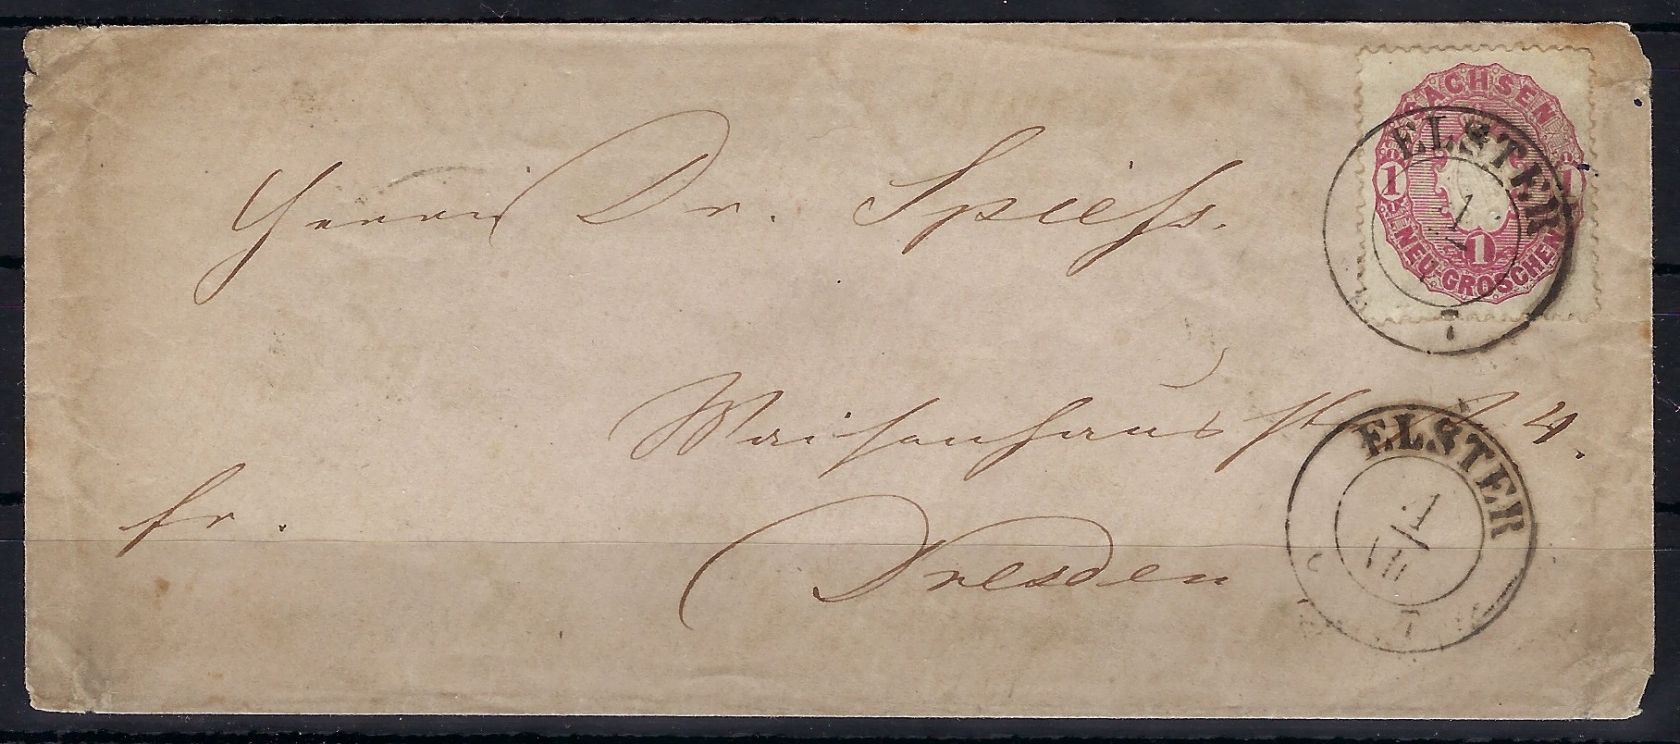 SACHSEN
1 1
1
NEU-GROSCHEN
ELSTER
1
7
Herrn Dr. Spieß.
Waisenhausstr 4.
fr.
Dresden
ELSTER
1
VII
7